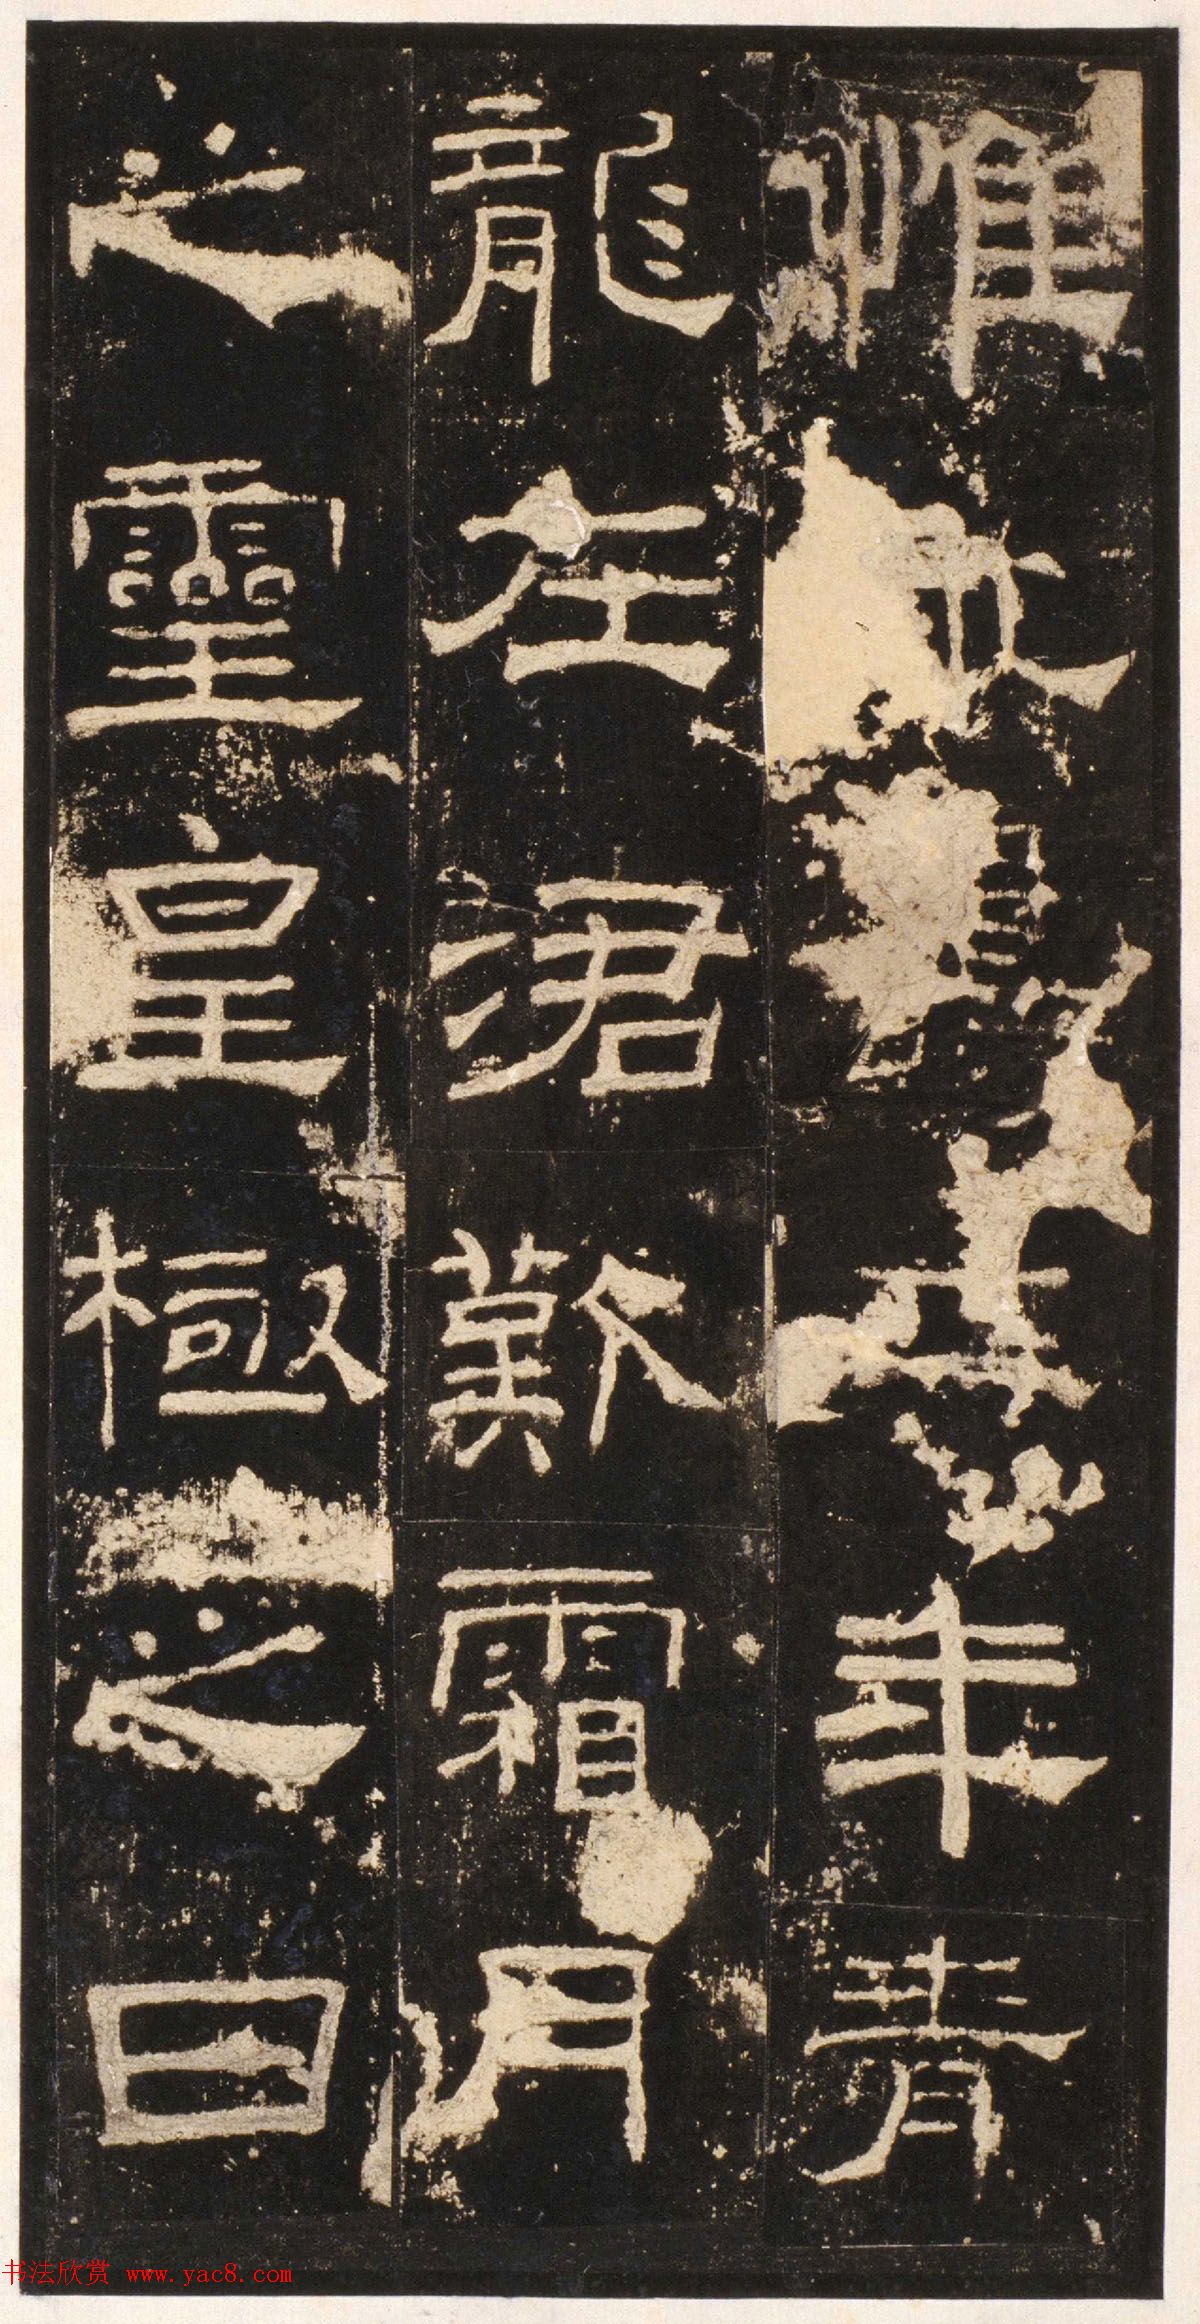 惟永壽二年青
龍在涒歎霜月
之靈皇極之日
书法欣赏 www.yac8.com